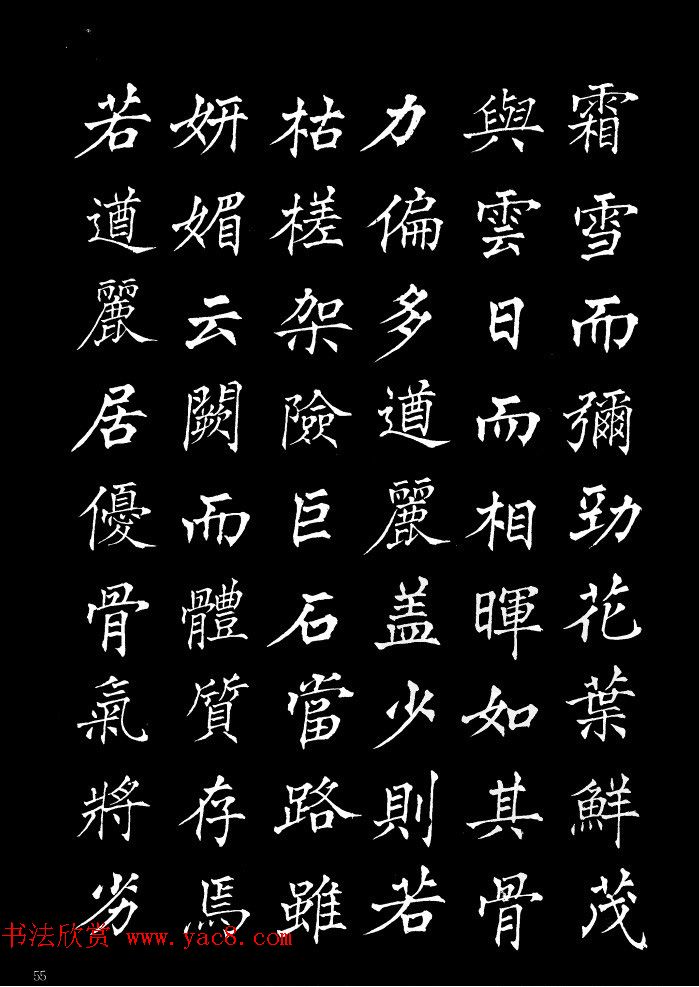 霜雪而彌勁花葉鮮茂
與雲日而相暉如其骨
力偏多遒麗盖少則若
枯槎架險巨石當路雖
妍媚云闕而體質存焉
若遒麗居優骨氣將劣
书法欣赏 www.yac8.com
55